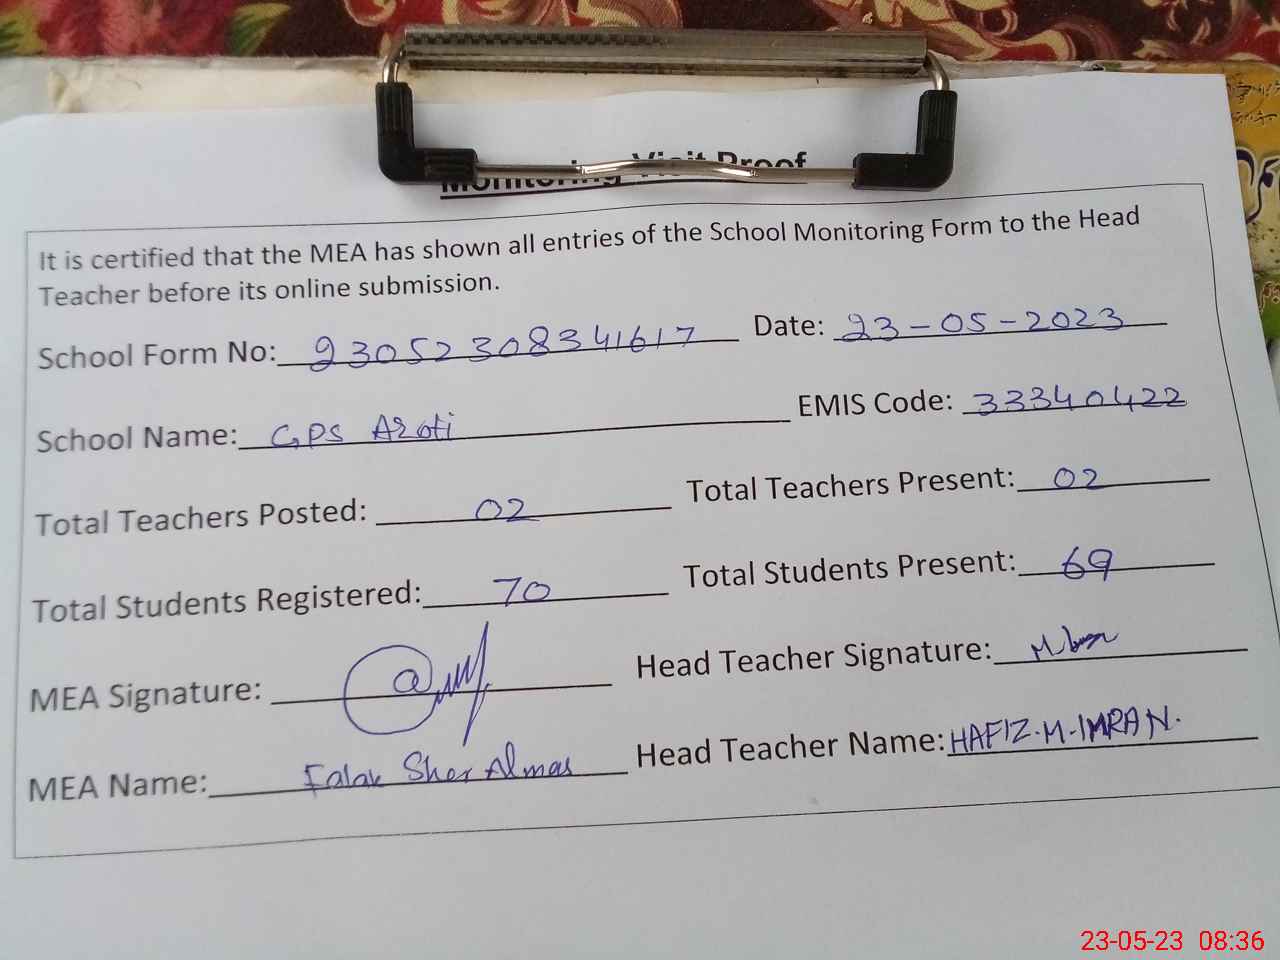 Monitoring Visit Proof
It is certified that the MEA has shown all entries of the School Monitoring Form to the Head
Teacher before its online submission.
School Form No: 93052308341617 Date: 23-05-2023
School Name: GPS Aroti EMIS Code: 33340422
Total Teachers Posted: 02 Total Teachers Present: 02
Total Students Registered: 70 Total Students Present: 69
MEA Signature: Head Teacher Signature:
MEA Name: Falak Sher Almas Head Teacher Name: HAFIZ.M.IMRAN.
23-05-23 08:36